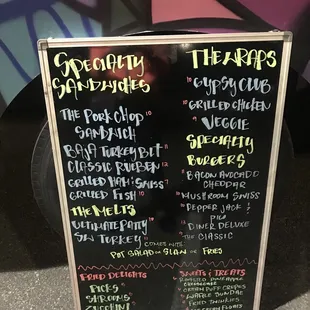 SPECIALTY
SANDWICHES
THE PORK CHOP 10
SANDWICH
BAJA TURKEY BLT 11
CLASSIC RUEBEN 12
GRILLED HAM & SWISS
GRILLED FISH 10
THE MELTS
ULTIMATE PATTY
SW TURKEY
THE WRAPS
GYPSY CLUB
GRILLED CHICKEN
VEGGIE
SPECIALTY
BURGERS
BACON AVOCADO
CHEDDAR
MUSHROOM SWISS
PEPPER JACK &
PICO
DINER DELUXE
THE CLASSIC
COMES WITH
POT SALAD OR SLAW OR FRIES
FRIED DELIGHTS
PICKS
SHROOMS
SWEETS & TREATS
ROASTED PINEAPPLE
CHEESECAKE
CREAM PUFF CREPES
WAFFLE SUNDAE
FRIED TWINKIES
FLOATS